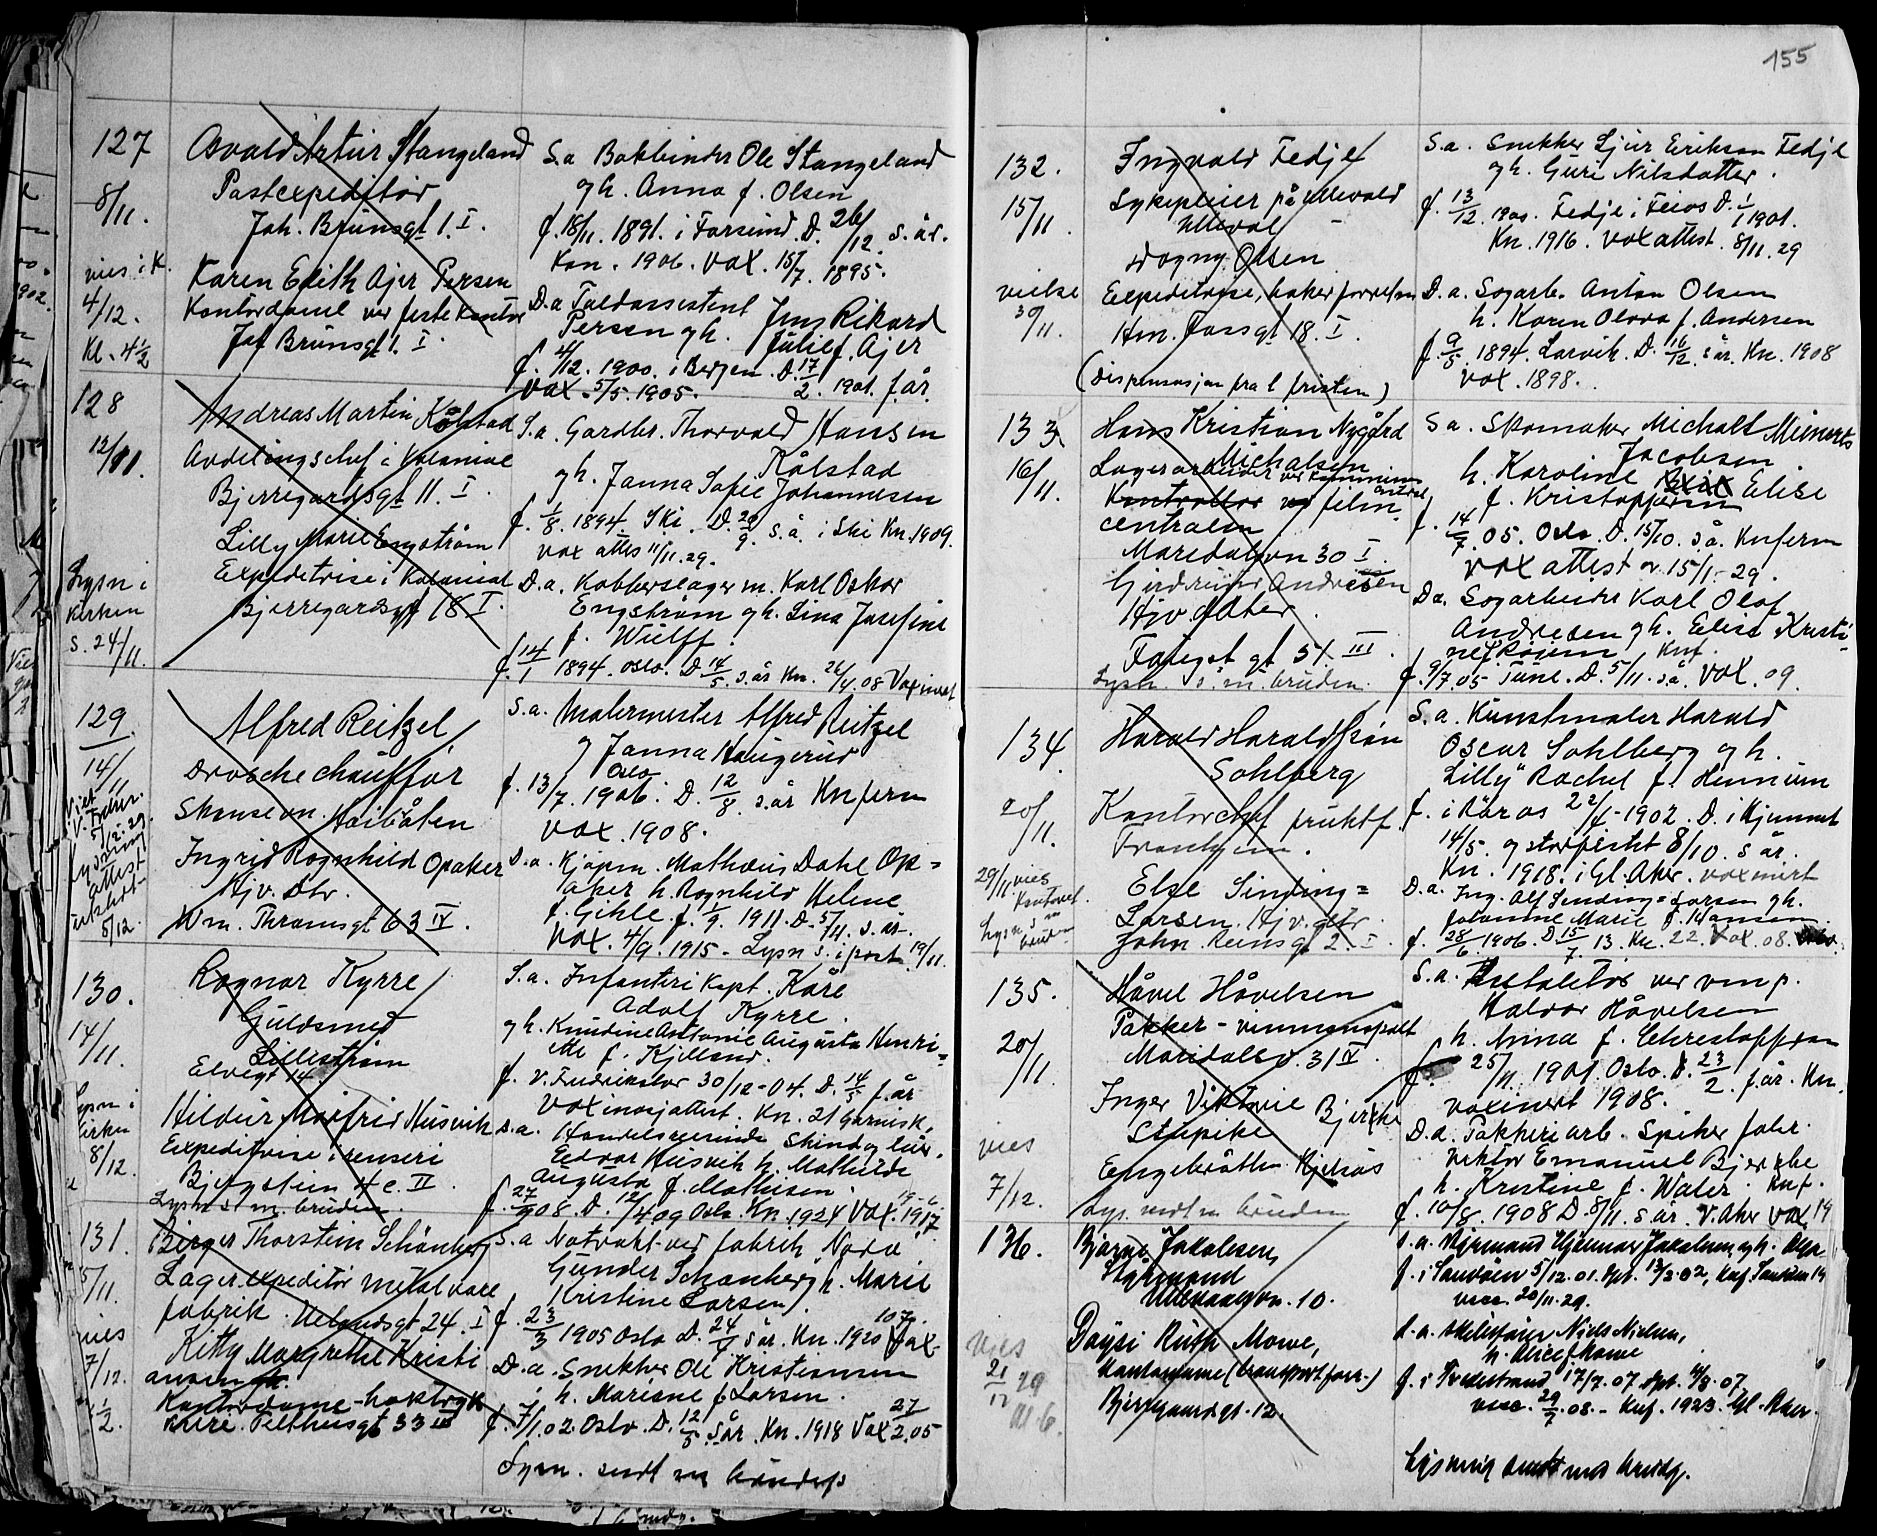 155
127
8/11.
vies i K.
4/12.
Kl. 4½
Osvald Artur Stangeland
Postexpeditör
Joh. Brunsgt 1. I.
Karen Edith Ajer Persen
Kontordame ved
Joh Brunsgt 1. I
S.a Bokbinder Ole Stangeland
og h. Anna f. Olsen
f. 18/11. 1891. i Farsund. D. 26/12. s. år.
Kon. 1906. Vax. 15/7. 1895.
D.a Toldassistent Jens Rikard
Persen og h. Julie f. Ajer
f. 4/12. 1900. i Bergen. D. 17/2. 1901. f. år.
Vax. 5/5. 1905.
128
12/11.
Lysn i
Kirken
s. 24/11.
Andreas Martin Kålstad
Avdelingschef i Kolonial
Bjerregardsgt 11. I.
Lilly Marie Engström
Expeditrise i Kolonial
Bjerregardsgt 18 I.
S.a. Gardbr. Thorvald Hansen
Kålstad
og h. Janna Sofie Johannesen
f. 1/8. 1894. Ski. D. 29/9. s.å. i Ski Kn. 1909.
Vax attes 11/11. 29.
D.a. Kobberslager m. Karl Oskar
Engström og h. Lina Josefine
f. Wulff.
f. 14/1 1894. Oslo. D. 14/5. s. år Kn. 26/4. 08 Vax
129.
14/11
5/12. 29
attest
utstedt
5/12.
Alfred Reitzel,
Drosche chauffør
Ingrid Ragnhild Opaker
Hjv. Dtr.
Wm. Thranesgt 63 IV.
S.a. Malermester Alfred Reitzel
og Janna Haugerud
Oslo
f. 13/7. 1906. D. 12/8. s. år Kn fern
Vax. 1908.
D.a. Kjøpm. Mathæus Dahl Op=
aker h. Ragnhild Helene
f. Gihle. f. 1/9. 1911. D. 5/11. s. år.
Vax. 4/9. 1915. Lysn s. i post. 19/11.
130.
14/11.
Lysn i
Kirken
8/12.
Ragnar Kyrre
Guldsmed
Lilleström
Elvegt 14
Hildur Marfrid Husvik
Expeditrise i renseri
Bjergstien 4c. II.
Lysn s. m. bruden.
S.a. Infanteri Kapt. Kåre
Adolf Kyrre.
og h. Knudine Antonie Augusta Henri=
f. Kjelland.
f. v. Fredrikstad 30/12-04. D. 14/5. f. år
Vax attest. Kn. 21 Garnisk.
D.a. Handelsreisende
Edvar Husvik h. Mathilde
Augusta f. Mathisen.
f. 27/9 08. D. 12/4 09 Oslo. Kn. 1924 Vax. 1917
131.
15/11.
vies
7/12.
Birger Thorstein Schönberg
Lagerexpeditör metalvare
fabrik. Uelandsgt 24. I
Kitty Margrethe Kristi
ansen
Kontordame-boktryk
keri. Pilthusgt 33 III
S.a Natvakt ved fabrik Nora
Gunder Schønberg h. Marie
Kristine Larsen.
f. 23/3 1905 Oslo D. 24/4 s. år. Kn. 1920 Vax
D.a. Snekker Ole Kristiansen
h. Mariane f. Larsen.
f. 7/1. 02. Oslo. D. 12/5. s. år. Kn. 1918 Vax 27/2. 05
Lysn. sendt m brudef
132.
15/11
vielse
30/11.
Ingvald Fedje
Sykepleier på Ullevold
Ullevol
Dagny Olsen
Expeditrise, bakerforretn
Hm. Fossgt 18. I.
(Dispensasjon fra l fristen)
S.a. Snekker Sjur Erikson Fedje
og h. Guri Nilsdatter.
f. 13/12. 1900. Fedje i Feios D. 1/1 1901.
Kn. 1916. Vaxattest. 8/11. 29
D.a. Sagarb. Anton Olsen
h. Karen Olava f. Andersen
f. 9/5. 1894. Larvik. D. 16/12. s år. Kn. 1908
Vax. 1898.
133
16/11.
Hans Kristian Nygård
Michalsen
Lagerarbeider ved Kommunenes
Kontrollør ved film-
centralen
Maridalsvn 30 I
Gjertrud Andresen
Hjv datter.
Fougst gt 51. III.
Lysn. s. m. bruden.
S.a. Skomaker Michael Meinerts
Jacobsen
h. Karoline Elise
f. Kristoffersen
f. 14/7. 05. Oslo. D. 15/10. s.å. Kn fern
Vax attest av 15/1-29.
D.a. Sagarbeider Karl Olaf
Andresen og h. Elise Kristi-
ne f Røien Knf.
f. 9/7. 05. Tune. D. 5/11. så. Vax. 09.
134.
20/11.
29/11 vies
Kontoret.
Lysn. s m
bruden
Harald Haraldssön
Sohlberg
Kontorchef fruktf.
Trondhjem.
Else Sinding=
Larsen. Hj v. dtr
John Reinsgt 2. I.
S.a. Kunstmaler Harald
Oscar Sohlberg og h.
Lilly Rachel f. Hennum
f. i Röros 22/4-1902. D. i Hjemmet
14/5. og stadfestet 8/10. s år.
Kn. 1918. i Gl. Aker.
D.a. Ing. Alf Sinding-Larsen og h.
Johanne Marie f. Hansen.
f. 28/6. 1906. D 15/7. 13. Kn. 22. Vax. 08.
135.
20/11
vies
7/12.
Håvel Håvelsen
Pakker - vinmonopolet
Maridalsv. 31 IV.
Inger Viktorie Bjerke
Stepike
Engebråtten Kjelsås
Lys. sendt m bruden
S.a. ved vmp.
Halvor Håvelsen
h. Anna f. Chrestoffersen
f. 25/11. 1901. Oslo. D. 23/2. f. år. Kn.
1908.
D.a. Pakkeriarb. Spiker fabr.
Viktor Emanuel Bjerke
h. Kristine f. Water. Knf.
f. 10/8. 1908 D. 8/11. s. år. V. Aker Vax. 19
136.
Vies
21/12 29
Kl 6.
Bjarne Jakobsen,
Styrmand
Ullevaalsvn. 10.
Daysi Ruth Mowe,
Kontordame (transportforr.)
Bjerregaardsgt. 12.
s.a. Styrmand Hjalmar Jakobsen og h. Olga
f. i Sandöen 5/12. 01. dpt. 13/3. 02, Knf. Sandöen 19
vacc. 20/11. 29.
d.a. Skibsfører Niels Nielsen,
h. Alice f. Mowe
f. i Tvedestrand 17/7. 07. dpt. 4/8. 07
vacc. 29/9. 08. - Knf. 1923. Gl. Aker.
Lysning sendt med brudg.